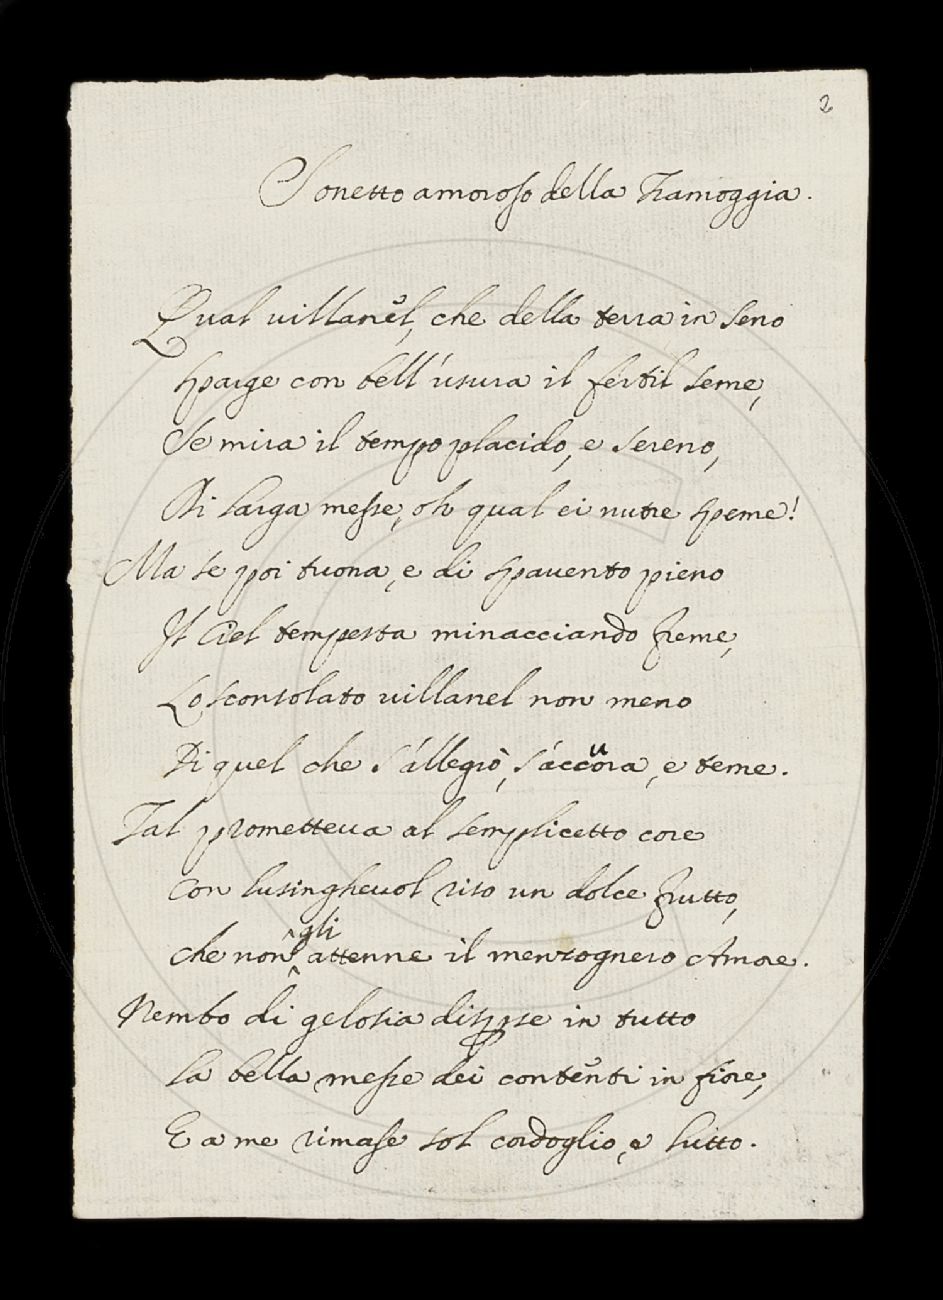 2
Sonetto amoroso della Tramoggia.
Qual uillanel, che della terra in seno
Sparge con bell'usura il fertil seme,
Se mira il tempo placido, e sereno,
Di larga messe, oh qual ei nutre speme!
Ma se poi tuona, e di spauento pieno
Il Ciel tempesta minacciando freme,
Lo sconsolato uillanel non meno
Di quel che s'allegrò, s'accuora, e teme.
Tal prometteua al semplicetto core
Con lusingheuol riso un dolce frutto,
Che non gli attenne il menzognero Amore.
Nembo di gelosia disperse in tutto
La bella messe dei contenti in fiore,
E a me rimase sol cordoglio, e lutto.